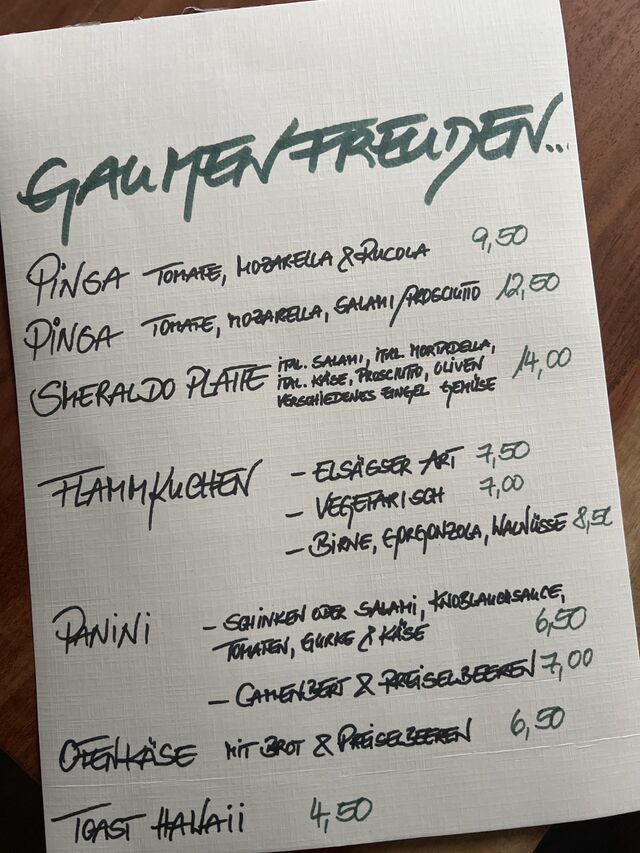 GAUMENFREUDEN...
PINSA TOMATE, MOZARELLA & RUCOLA 9,50
PINSA TOMATE, MOZARELLA, SALAMI/PROSCIUTTO 12,50
SHERALDO PLATTE ITAL. SALAMI, ITAL. MORTADELLA,
ITAL. KÄSE, PROSCIUTTO, OLIVEN 14,00
VERSCHIEDENES EINGEL. GEMÜSE
FLAMMKUCHEN - ELSÄSSER ART 7,50
- VEGETARISCH 7,00
- BIRNE, GORGONZOLA, WALNÜSSE 8,50
PANINI - SCHINKEN ODER SALAMI, KNOBLAUCHSAUCE,
TOMATEN, GURKE & KÄSE 6,50
- CAMENBERT & PREISELBEEREN 7,00
OFENKÄSE MIT BROT & PREISELBEEREN 6,50
TOAST HAWAII 4,50